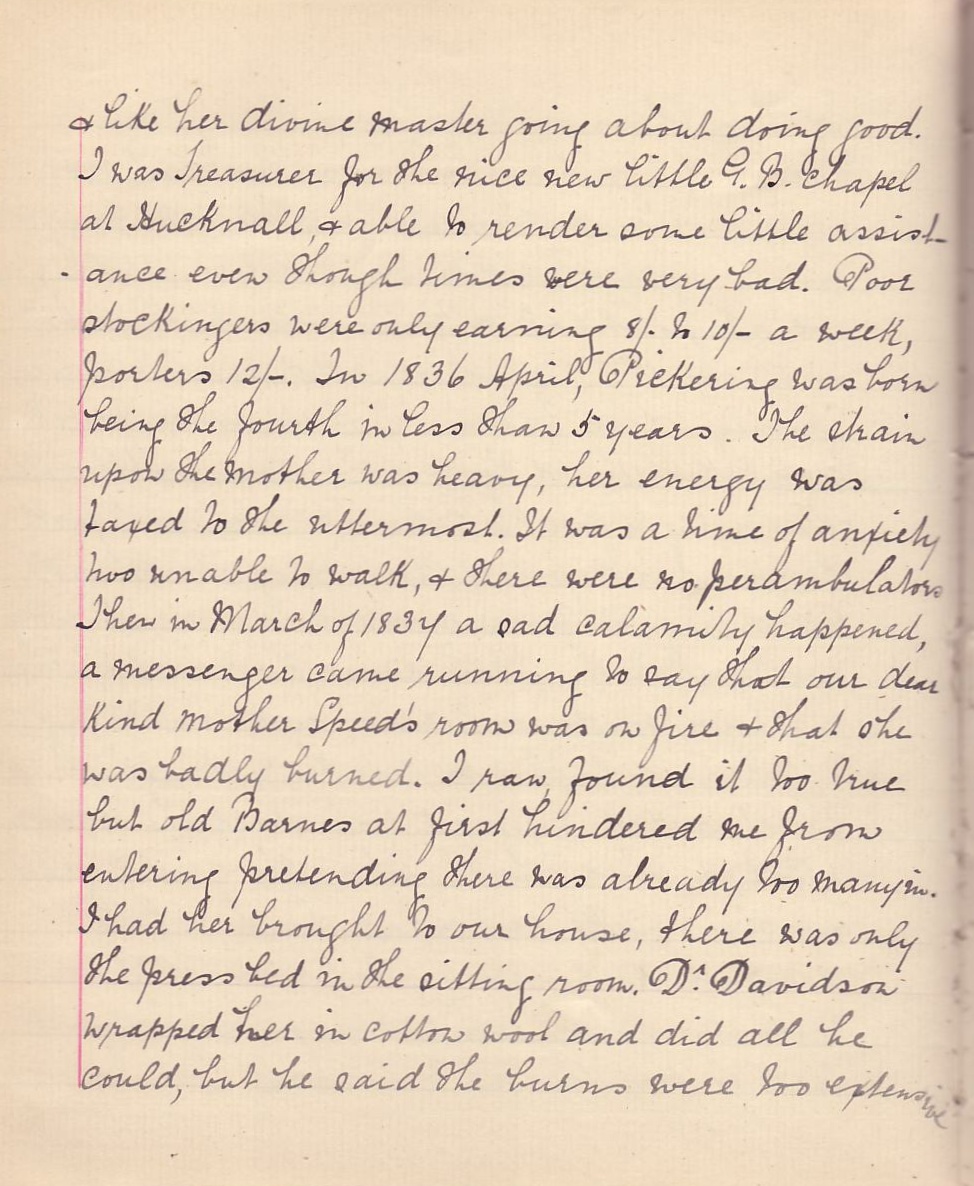 & like her divine master going about doing good.
I was Treasurer for the nice new little G. B. chapel
at Hucknall, & able to render some little assist-
- ance even though times were very bad. Poor
stockingers were only earning 8/- to 10/- a week,
porters 12/-. In 1836 April, Pickering was born
being the fourth in less than 5 years. The strain
upon the mother was heavy, her energy was
taxed to the uttermost. It was a time of anxiety
two unable to walk, & there were no perambulators
Then in March of 1837 a sad calamity happened,
a messenger came running to say that our dear
kind mother Speed's room was on fire & that she
was badly burned. I ran, found it too true
but old Barnes at first hindered me from
entering pretending there was already too many in.
I had her brought to our house, there was only
the press bed in the sitting room. Dr. Davidson
wrapped her in cotton wool and did all he
could, but he said the burns were too extensive